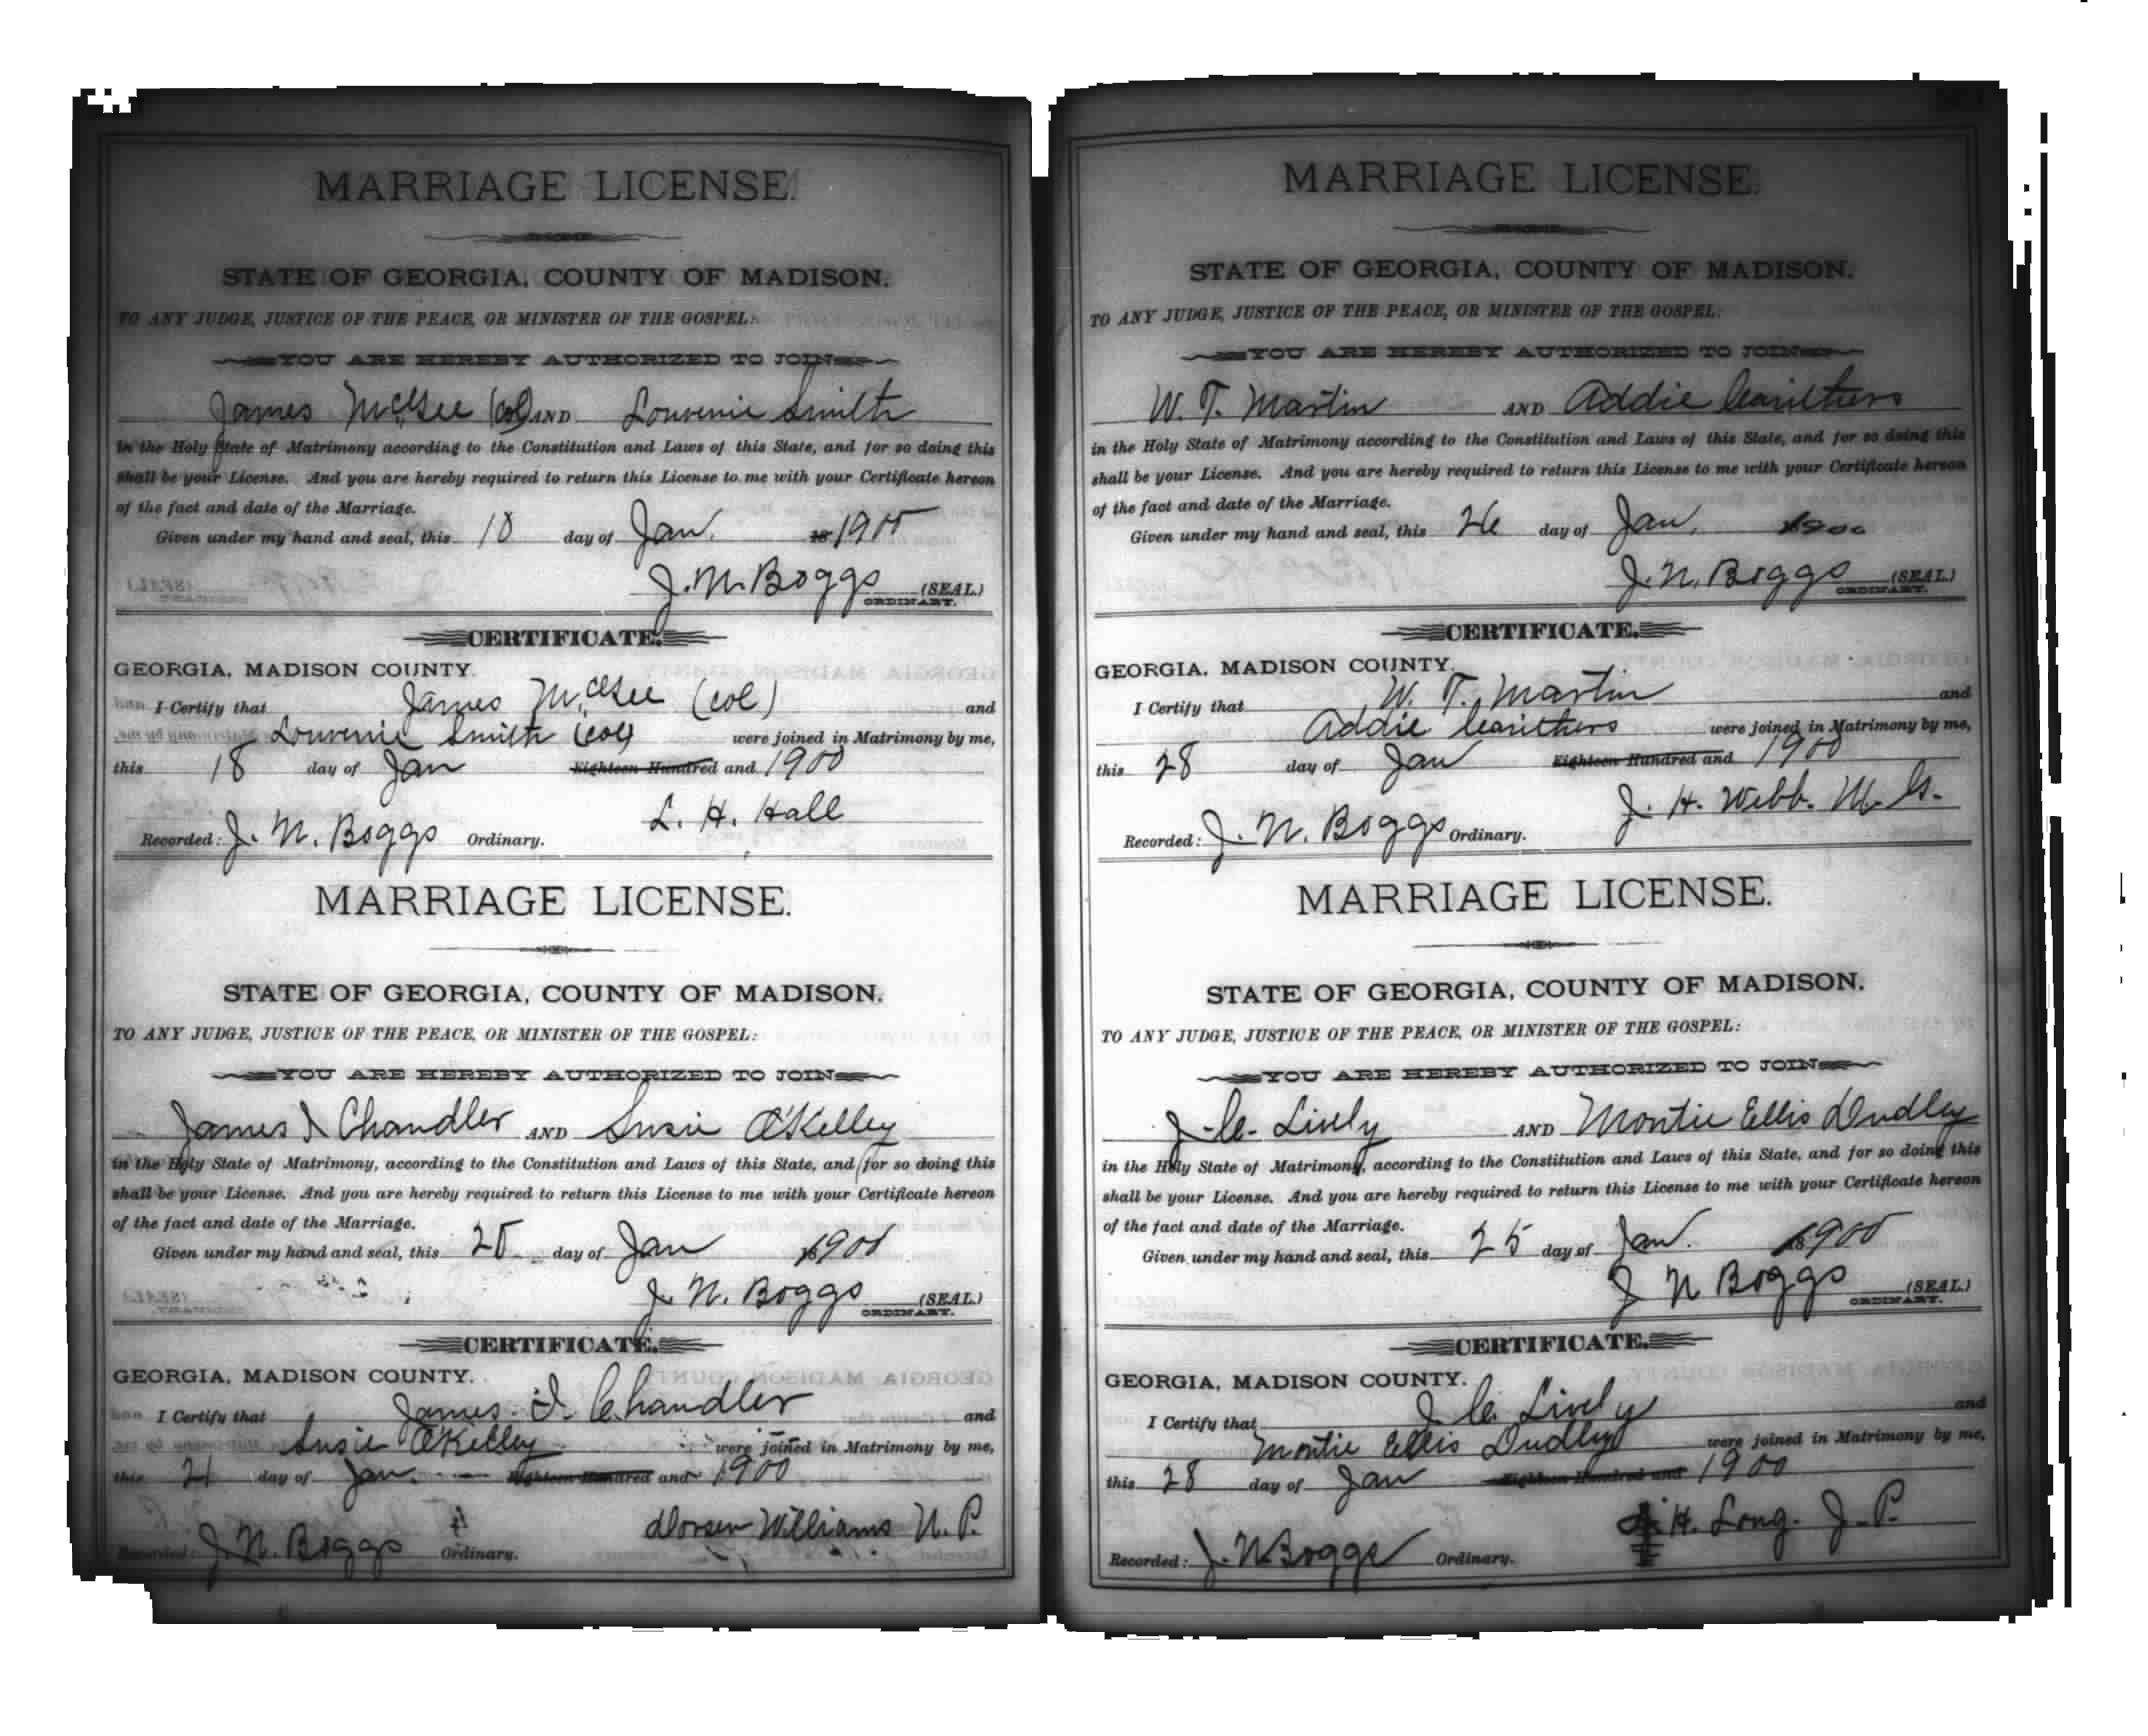 MARRIAGE LICENSE.
STATE OF GEORGIA, COUNTY OF MADISON.
TO ANY JUDGE, JUSTICE OF THE PEACE, OR MINISTER OF THE GOSPEL:
YOU ARE HEREBY AUTHORIZED TO JOIN
James McGee (col) AND Louvenie Smith
in the Holy State of Matrimony according to the Constitution and Laws of this State, and for so doing this
shall be your License. And you are hereby required to return this License to me with your Certificate hereon
of the fact and date of the Marriage.
Given under my hand and seal, this 18 day of Jan. 18 1900
J. N. Boggs (SEAL.)
ORDINARY.
CERTIFICATE.
GEORGIA, MADISON COUNTY.
I Certify that James McGee (col) and
Louvenie Smith (col) were joined in Matrimony by me,
this 18 day of Jan Eighteen Hundred and 1900
L. H. Hall
Recorded: J. N. Boggs Ordinary.
MARRIAGE LICENSE.
STATE OF GEORGIA, COUNTY OF MADISON.
TO ANY JUDGE, JUSTICE OF THE PEACE, OR MINISTER OF THE GOSPEL:
YOU ARE HEREBY AUTHORIZED TO JOIN
James I Chandler AND Susie O'Kelley
in the Holy State of Matrimony, according to the Constitution and Laws of this State, and for so doing this
shall be your License. And you are hereby required to return this License to me with your Certificate hereon
of the fact and date of the Marriage.
Given under my hand and seal, this 20 day of Jan 1900
J. N. Boggs (SEAL.)
ORDINARY.
CERTIFICATE.
GEORGIA, MADISON COUNTY.
I Certify that James I. Chandler and
Susie O'Kelley were joined in Matrimony by me,
this 21 day of Jan. Eighteen Hundred and 1900
Williams N. P.
Recorded: J. N. Boggs Ordinary.
MARRIAGE LICENSE.
STATE OF GEORGIA, COUNTY OF MADISON.
TO ANY JUDGE, JUSTICE OF THE PEACE, OR MINISTER OF THE GOSPEL:
YOU ARE HEREBY AUTHORIZED TO JOIN
W. T. Martin AND Addie Carithers
in the Holy State of Matrimony according to the Constitution and Laws of this State, and for so doing this
shall be your License. And you are hereby required to return this License to me with your Certificate hereon
of the fact and date of the Marriage.
Given under my hand and seal, this 26 day of Jan. 1900
J. N. Boggs (SEAL.)
ORDINARY.
CERTIFICATE.
GEORGIA, MADISON COUNTY.
I Certify that W. T. Martin and
Addie Carithers were joined in Matrimony by me,
this 28 day of Jan Eighteen Hundred and 1900
J. H. Webb. M. G.
Recorded: J. N. Boggs Ordinary.
MARRIAGE LICENSE.
STATE OF GEORGIA, COUNTY OF MADISON.
TO ANY JUDGE, JUSTICE OF THE PEACE, OR MINISTER OF THE GOSPEL:
YOU ARE HEREBY AUTHORIZED TO JOIN
J. C. Lively AND Montie Ellis Dudley
in the Holy State of Matrimony, according to the Constitution and Laws of this State, and for so doing this
shall be your License. And you are hereby required to return this License to me with your Certificate hereon
of the fact and date of the Marriage.
Given under my hand and seal, this 25 day of Jan. 1900
J N Boggs (SEAL.)
ORDINARY.
CERTIFICATE.
GEORGIA, MADISON COUNTY.
I Certify that J. C. Lively and
Montie Ellis Dudley were joined in Matrimony by me,
this 28 day of Jan Eighteen Hundred and 1900
H. Long. J. P.
Recorded: J. N. Boggs Ordinary.